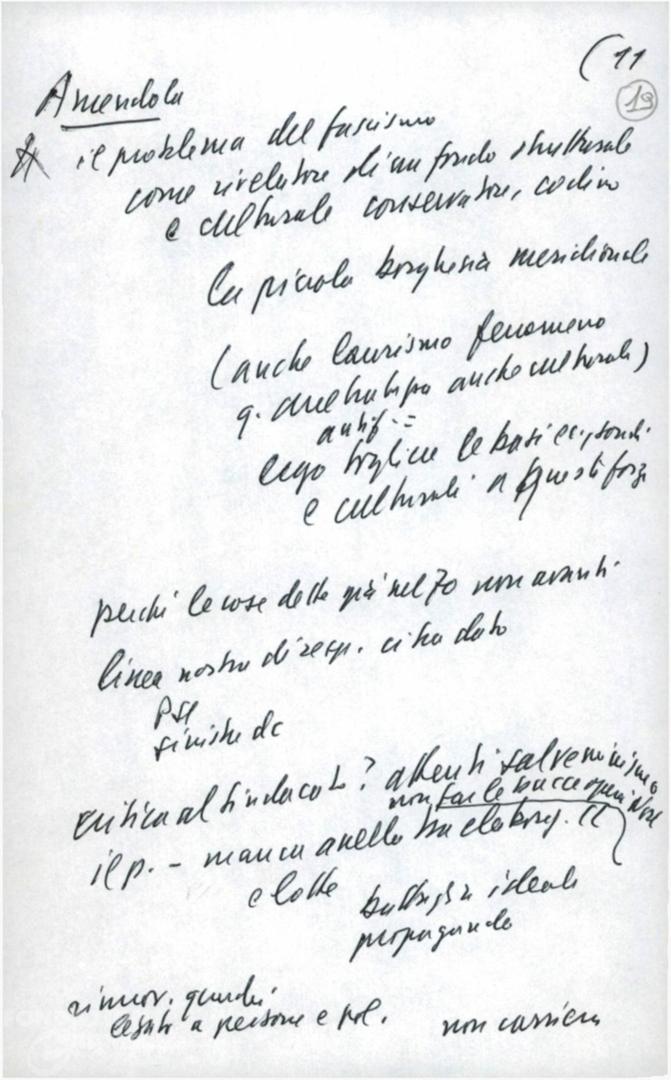 (11
19
Amendola
il problema del fascismo
come rivelatore di un fondo strutturale
e culturale conservatore, codino
la piccola borghesia meridionale
(anche laurismo fenomeno
q. anche culturale)
antif. =
ergo togliere le basi ec., soci.
e culturali a queste forze
perché le cose dette già nel 70 non avanti
linea nostra di resp. ci ha dato
PSI
sinistre dc
critica al sindacato? attenti salveminismo
non far le bucce
il p. - manca anello tra elabor.
e lotte
battaglia ideale
propaganda
rinnov. quadri
legato a persone e pol.
non carriera